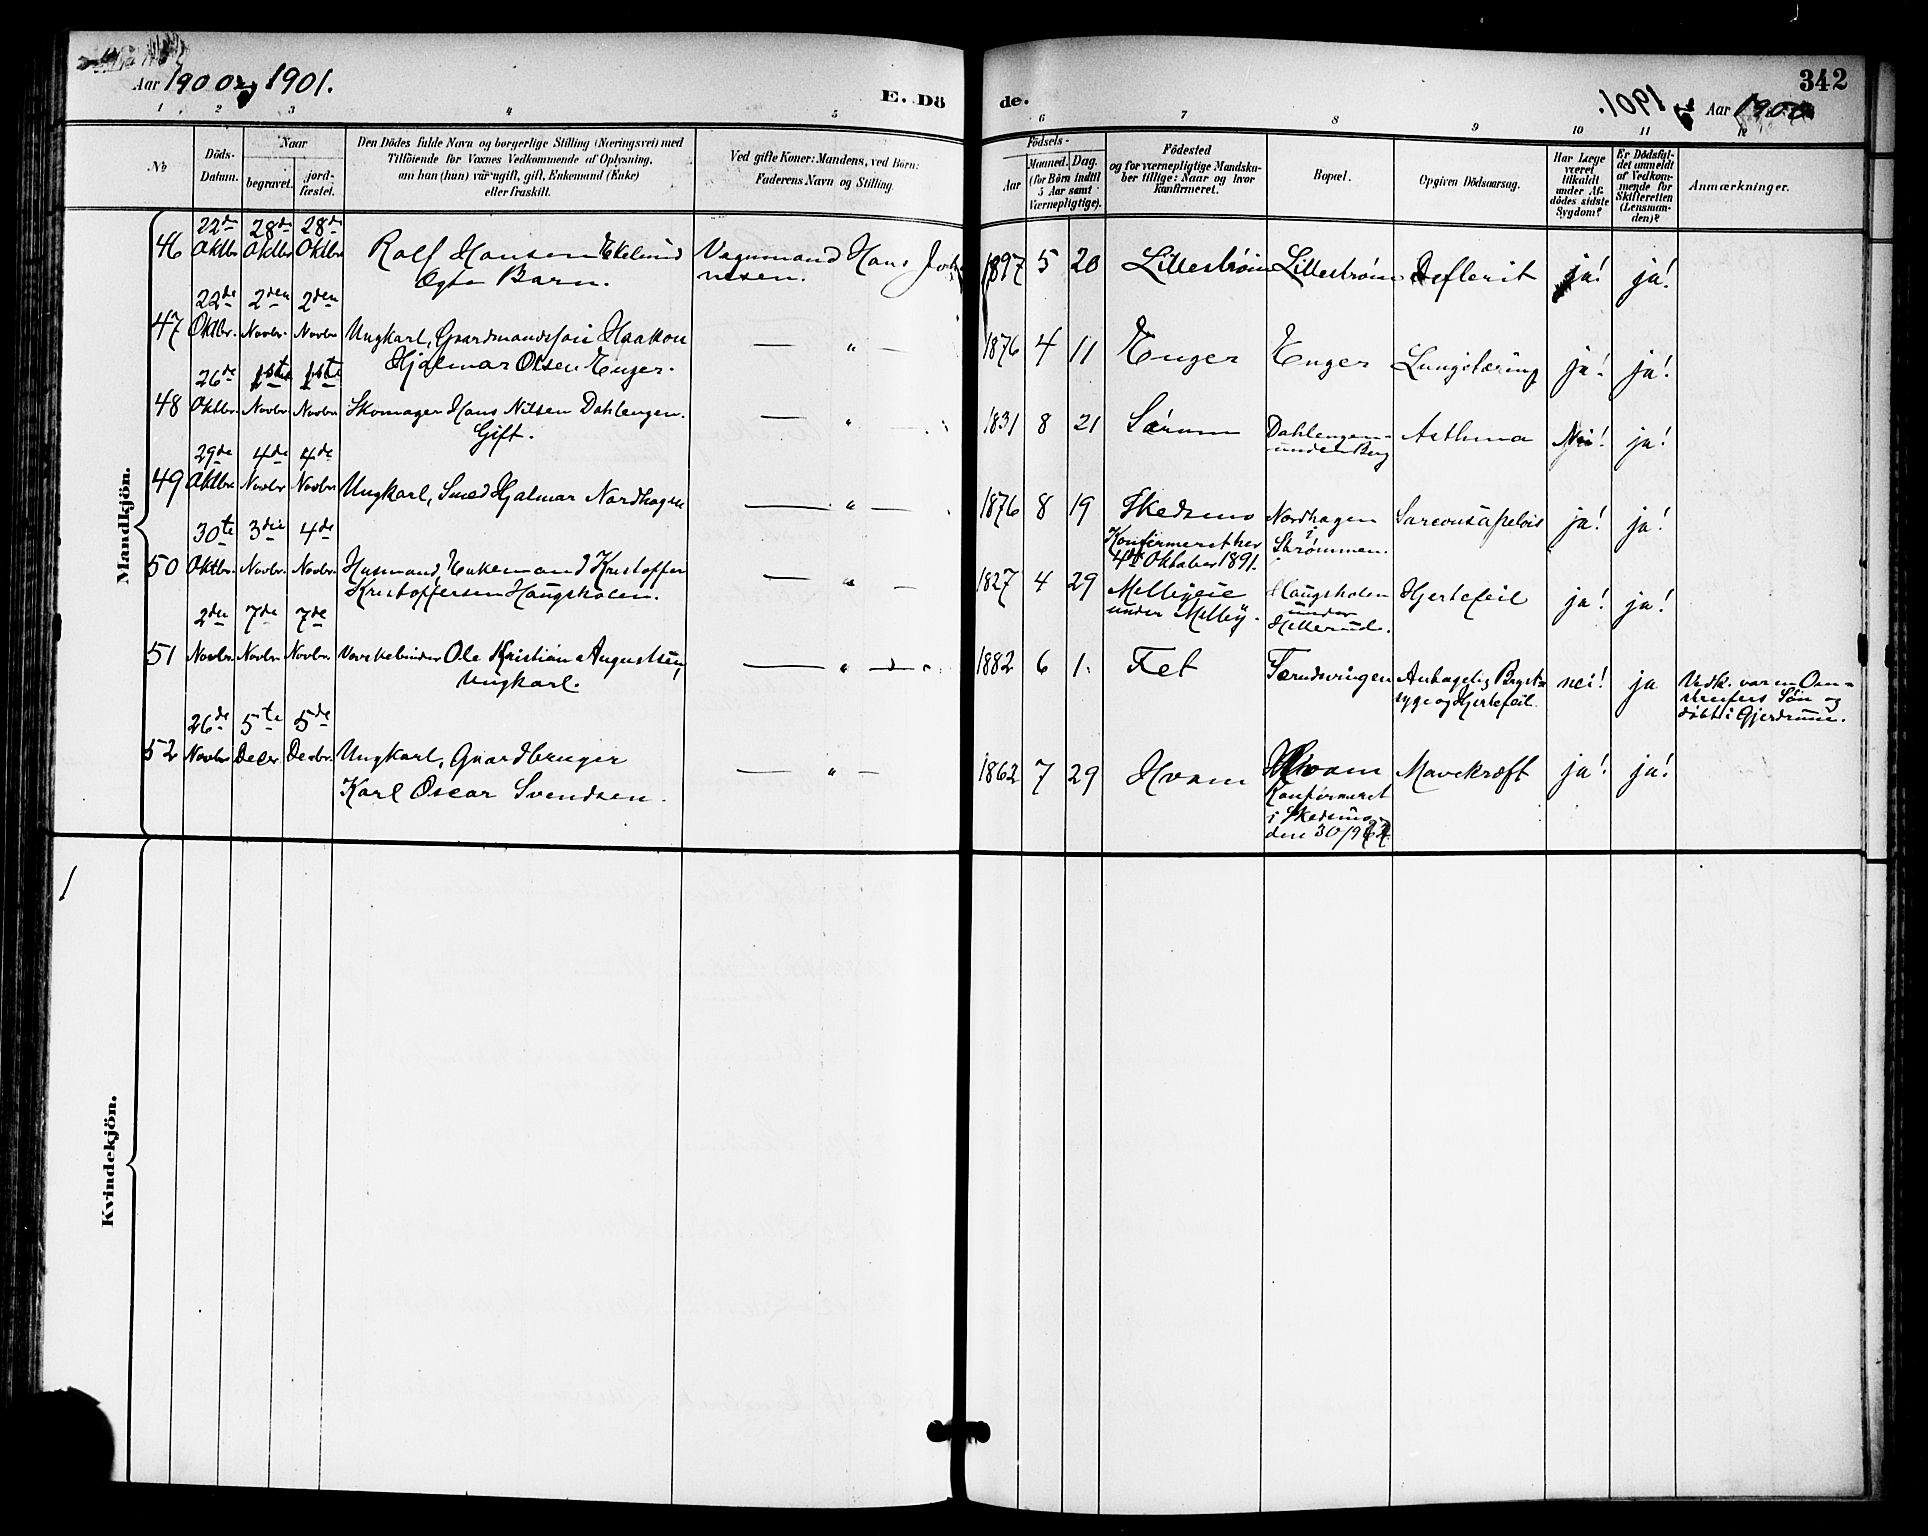 Aar 1900 og 1901.
E. Dö
de.
1901. Aar 1900
342
1 2 3 4 5
6 7 8 9 10 11 12
No
Döds-
Datum.
Naar
begravet.
jord-
fæstet.
Den Dödes fulde Navn og borgerlige Stilling (Næringsvei) med
Tilföiende for Voxnes Vedkommende af Oplysning,
om han (hun) var ugift, gift, Enkemand (Enke)
eller fraskilt.
Ved gifte Koner: Mandens, ved Börn:
Faderens Navn og Stilling.
Födsels-
Aar
Maaned. Dag.
(for Börn indtil
5 Aar samt
Værnepligtige).
Födested
og for værnepligtige Mandska-
ber tillige: Naar og hvor
konfirmeret.
Bopæl.
Opgiven Dödsaarsag.
Har Læge
været
tilkaldt
under Af-
dödes sidste
Sygdom?
Er Dödsfal-
det anmeldt
af Vedkom-
mende for
Skifteretten
(Lensman-
den)?
Anmærkninger.
Mandkjön.
22de 28de 28de
46 Oktbr Oktbr Oktbr Rolf Hansen Ekelund Vognmand Hans 1897 5 20 Lillestrøm Lillestrøm Defterit ja! ja!
Ægte Barn.
22de 2den 2den
47 Oktbr. Novbr. Novbr Ungkarl, Gaardmandssøn Haakon — " — 1876 4 11 Enger Enger Lungetæring ja! ja!
Hjalmar Olsen Enger.
26de 1ste 1ste
48 Oktbr. Novbr Novbr Skomager Hans Nilsen Dahlengen. — " — 1831 8 21 Sørum Dahlengen Asthma Nei! ja!
Gift. under Berg
29de 4de 4de
49 Oktbr Novbr Novbr. Ungkarl, Smed Hjalmar Nordhagen — " — 1876 8 19 Skedsmo Nordhagen ja! ja!
Konfirmeret her i Strømmen.
4de Oktober 1891.
30te 3die 4de
50 Oktbr. Novbr. Novbr. Husmand, Enkemand Kristoffer — " — 1827 4 29 Mellbyeie Haugsholen Hjertefeil ja! ja!
Kristoffersen Haugsholen. under Melby. under
Hellerud.
2den 7de 7de
51 Novbr. Novbr. Novbr. Ole Kristian Augustsen, — " — 1882 6 1. Fet Tærudsvingen nei! ja Vedk. var en Om-
Ungkarl. syge og Hjertefeil. streifers Søn og
døbt i Gjerdrum.
26de 5te 5de
52 Novbr Decbr Decbr. Ungkarl, Gaardbruger — " — 1862 7 29 Hvam Hvam Mavekræft ja! ja!
Karl Oscar Svendsen. Konfirmeret
i Skedsmo
den 30/9
Kvindekjön.
1